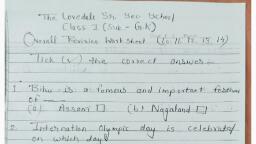 The Lovedale Sr. Sec School
Class-I (Sub - G.K)
Overall Revision Work Sheet (10, 11, 12, 13, 14)
Tick (✓) the correct answers -
1. Bihu is a famous and important festival of
(a) Assam □ (b) Nagaland □
2. Internation Olympic day is celebrated
on which day